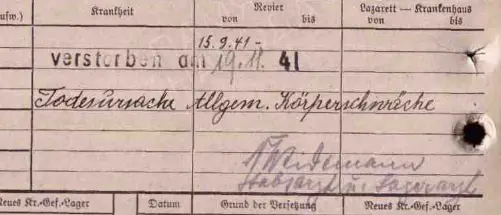 ufw.) Krankheit Revier Lazarett - Krankenhaus
von bis von bis
15.9.41-
verstorben am 19.11. 41
Todesursache Allgem. Körperschwäche
Weidemann
Stabsarzt u. Lagerarzt
Neues Kr.-Gef.-Lager Datum Grund der Versetzung Neues Kr.-Gef.-Lager